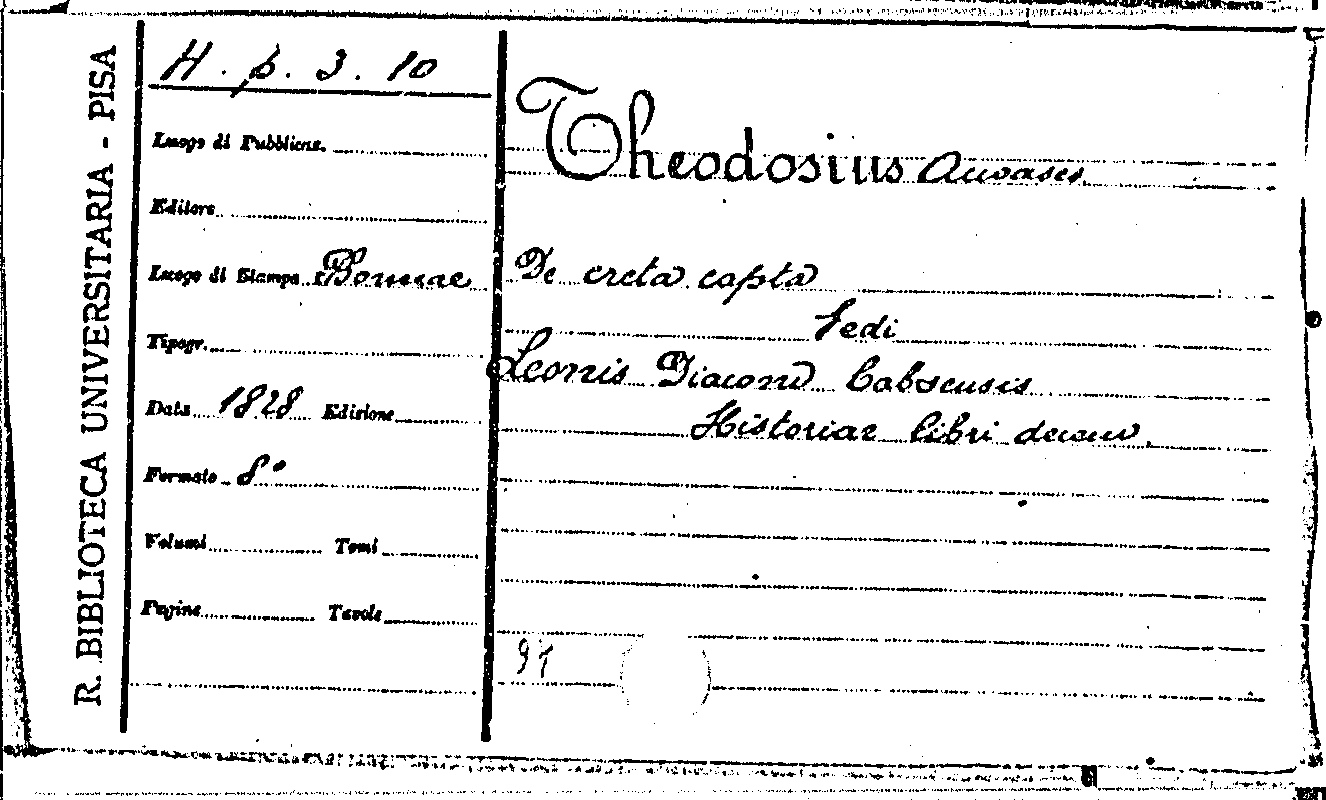 R. BIBLIOTECA UNIVERSITARIA - PISA
H. p. 3. 10
Luogo di Pubblicaz.
Editore
Luogo di Stampa Bonnae
Tipogr.
Data 1828 Edizione
Formato 8°
Volumi Tomi
Pagine Tavole
Theodosius
De creta capta
Vedi
Leonis Diaconi
Historiae libri decem.